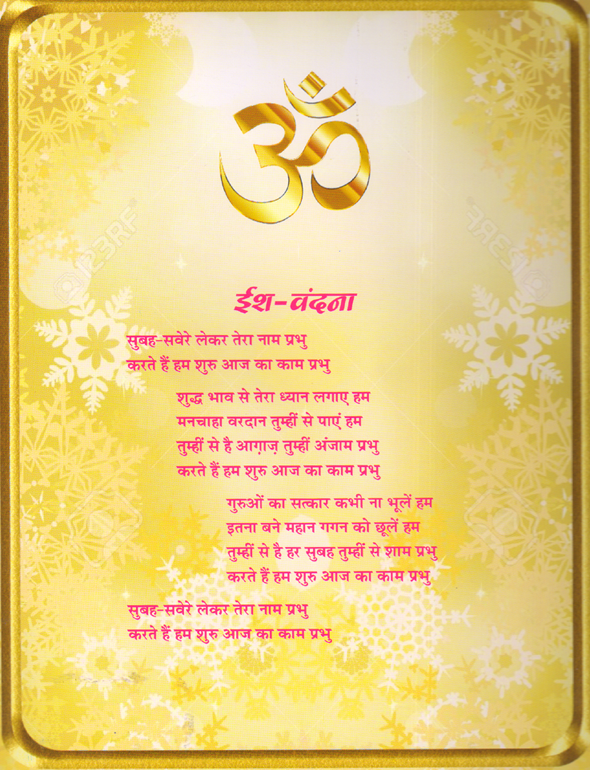 ॐ
ईश-वंदना
सुबह-सवेरे लेकर तेरा नाम प्रभु
करते हैं हम शुरु आज का काम प्रभु
शुद्ध भाव से तेरा ध्यान लगाए हम
मनचाहा वरदान तुम्हीं से पाएं हम
तुम्हीं से है आग़ाज़ तुम्हीं अंजाम प्रभु
करते हैं हम शुरु आज का काम प्रभु
गुरुओं का सत्कार कभी ना भूलें हम
इतना बने महान गगन को छूलें हम
तुम्हीं से है हर सुबह तुम्हीं से शाम प्रभु
करते हैं हम शुरु आज का काम प्रभु
सुबह-सवेरे लेकर तेरा नाम प्रभु
करते हैं हम शुरु आज का काम प्रभु